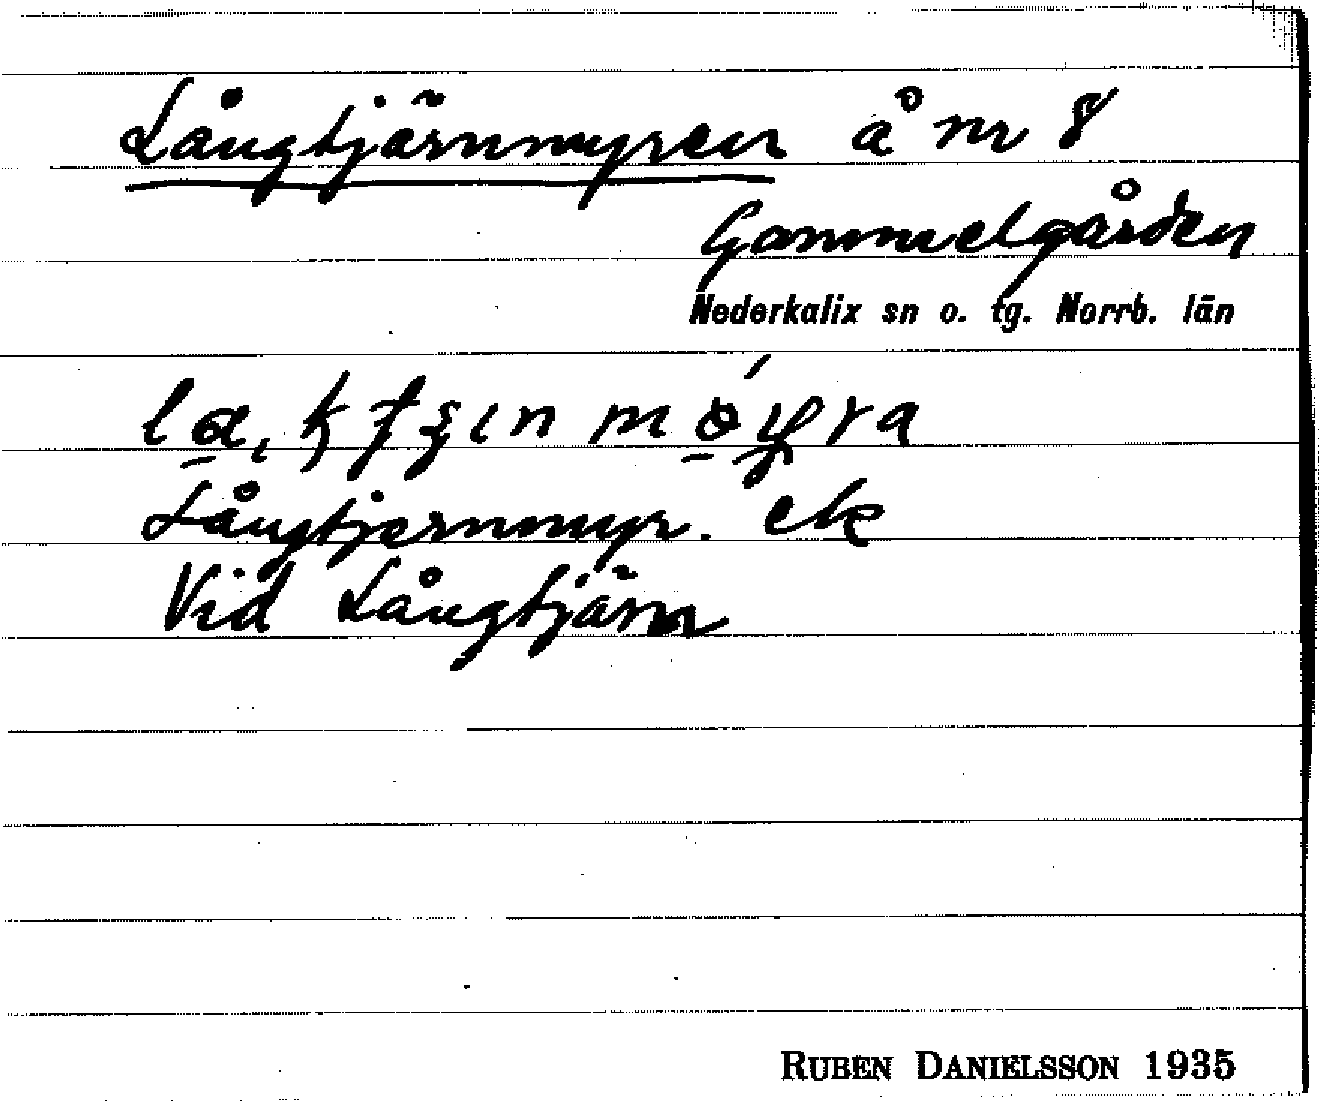 Långtjärnmyren å nr 8
Gammelgården
Nederkalix sn o. tg. Norrb. län
Långtjernmyr. ek
Vid Långtjärn
RUBEN DANIELSSON 1935